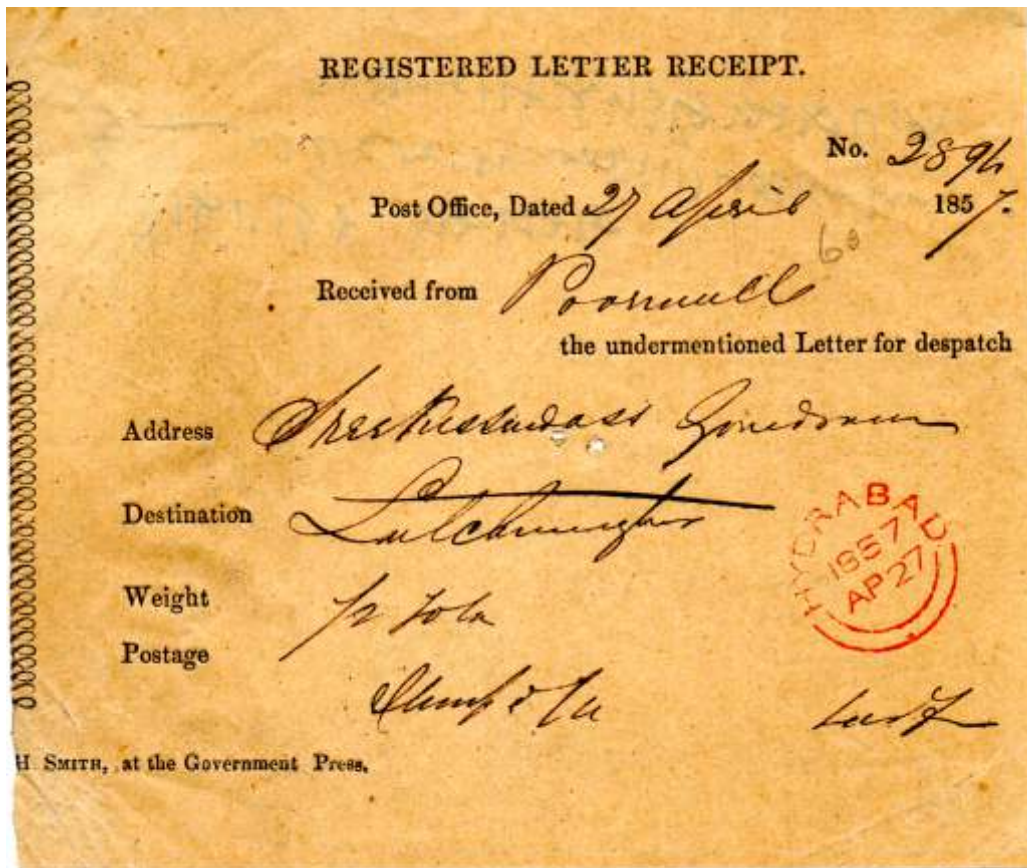 REGISTERED LETTER RECEIPT.
No. 2894
Post Office, Dated 27 April 1857.
60
Received from Poonmull
the undermentioned Letter for despatch
Address
Destination
Weight 1/2 tola
Postage
HYDRABAD
1857
AP 27
H SMITH, at the Government Press.